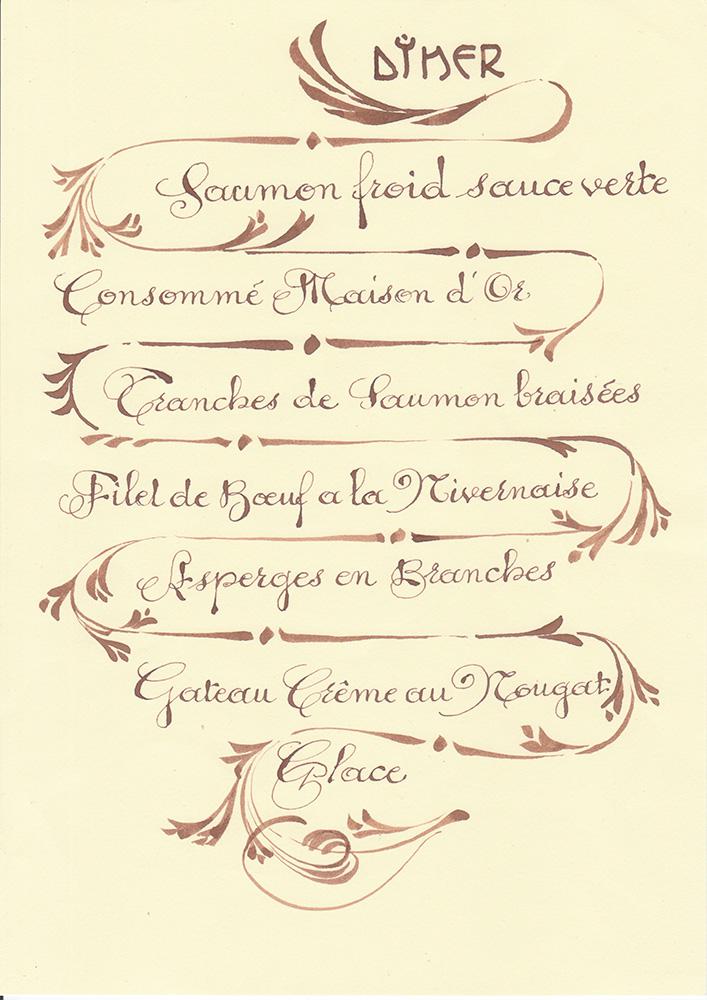 DÎNER
Saumon froid sauce verte
Consommé Maison d'Or
Tranches de Saumon braisées
Filet de Bœuf a la Nivernaise
Asperges en Branches
Gateau Crême au Nougat
Glace